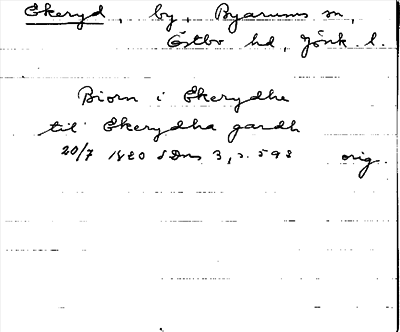 Ekeryd, by, Byarums sn,
Östbo hd, Jönk. l.
Biorn i Ekerydhe
til Ekerydha gardh
20/7 1420 SDns 3, s. 593 orig.